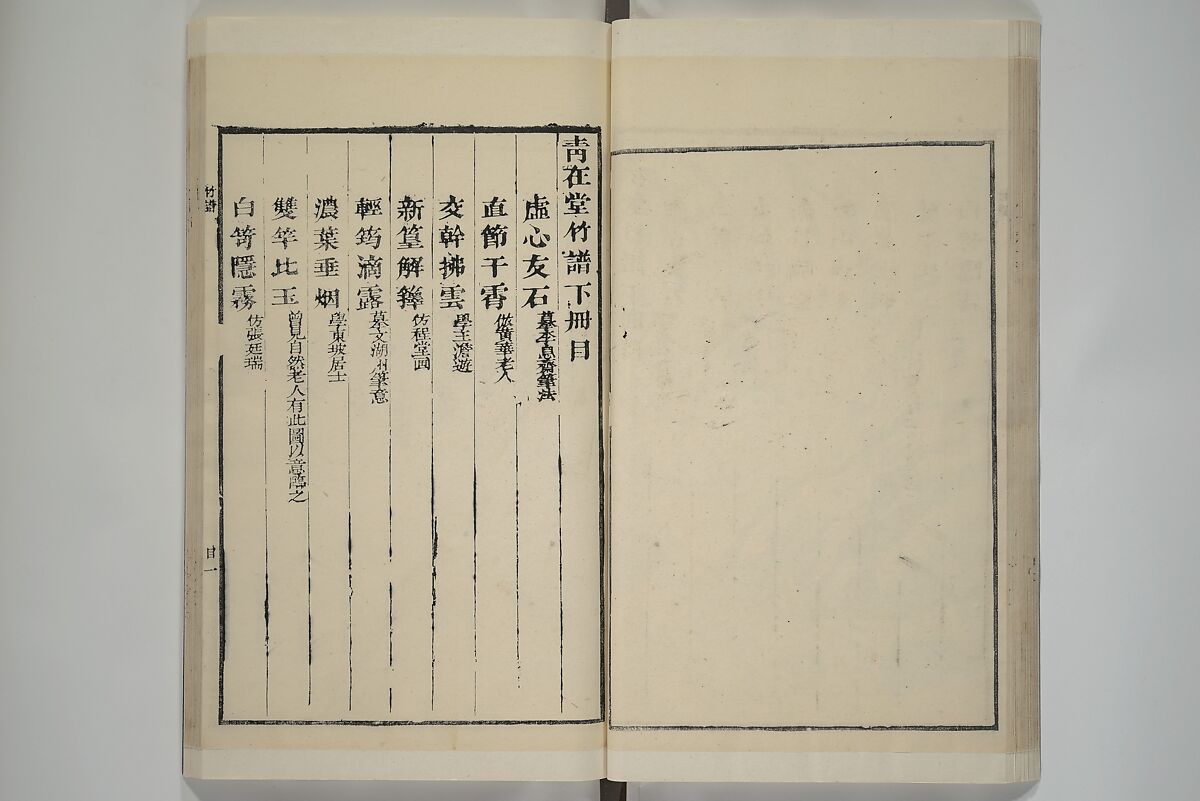 靑在堂竹譜下冊目
虛心友石 摹李息齋筆法
直節干霄 倣黃華老人
交幹拂雲 學王澹遊
新篁解籜 仿程堂畫
輕筠滴露 摹文湖州筆意
濃葉垂烟 學東坡居士
雙竿比玉 曾見自然老人有此圖以意臨之
白笴隱霧 仿張廷瑞
竹譜
目一